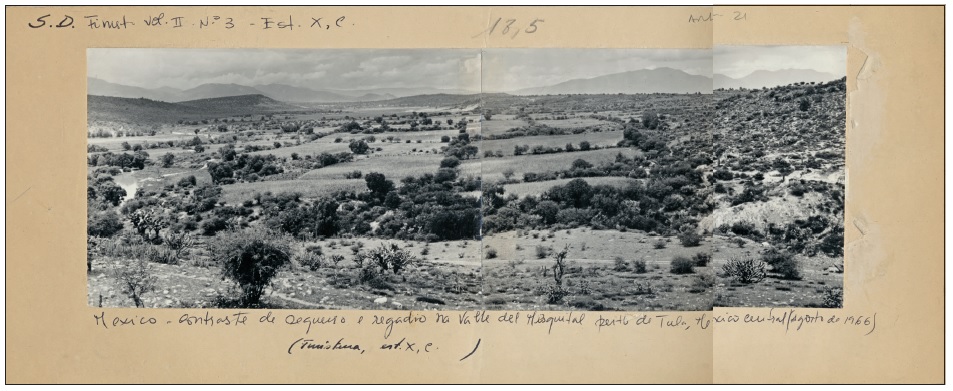 S.D. Finist. vol. II - Nº 3 - Est. X, C.
13,5
21
Mexico - Contraste de sequeiro e regadio na Valle del Mezquital perto de Tula, Mexico central (agosto de 1966)
(Finisterra, est. X, C. )